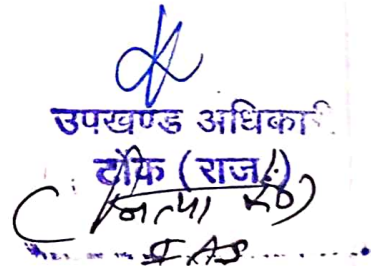 उपखण्ड अधिकारी
टोंक (राज.)
IAS